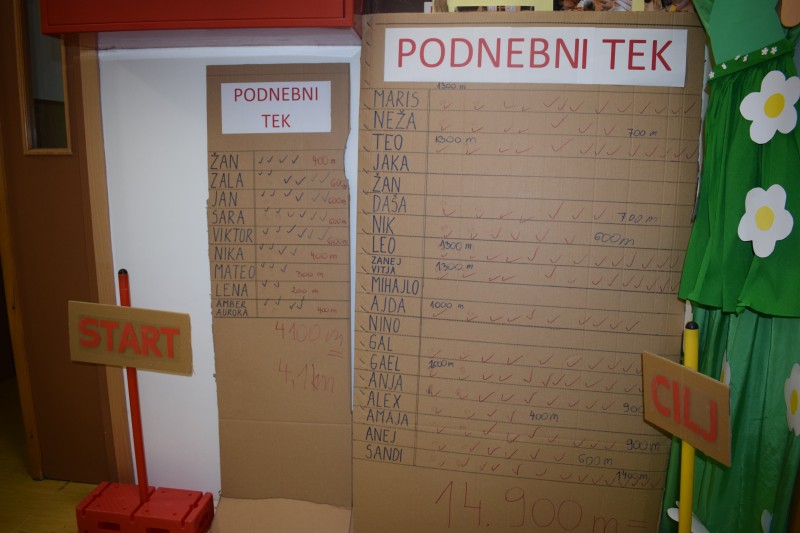 PODNEBNI
TEK
ŽAN 400m
ZALA 600m
JAN 600m
SARA 600m
VIKTOR 600m
NIKA 400m
MATEO 300m
LENA 200m
AMBER
AURORA 400m
4100m
4,1km
START
PODNEBNI TEK
1300m
MARIS
NEŽA 700m
TEO 1300m
JAKA
ŽAN
DAŠA 700m
NIK 600m
LEO 1300m
ZANEJ
VITJA 1300m
MIHAJLO
AJDA 1000m
NINO
GAL
GAEL
ANJA
ALEX 400m
AMAJA 900m
ANEJ 600m
SANDI 1400m
14.900m
CILJ